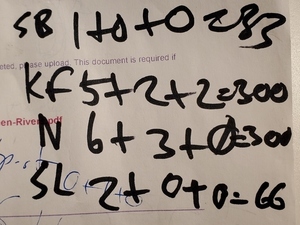 SB 1+0+0=83
eted, please upload. This document is required if
KF 5+2+2=300
en-River.pdf
N 6+3+0=300
SL 2+0+0=66